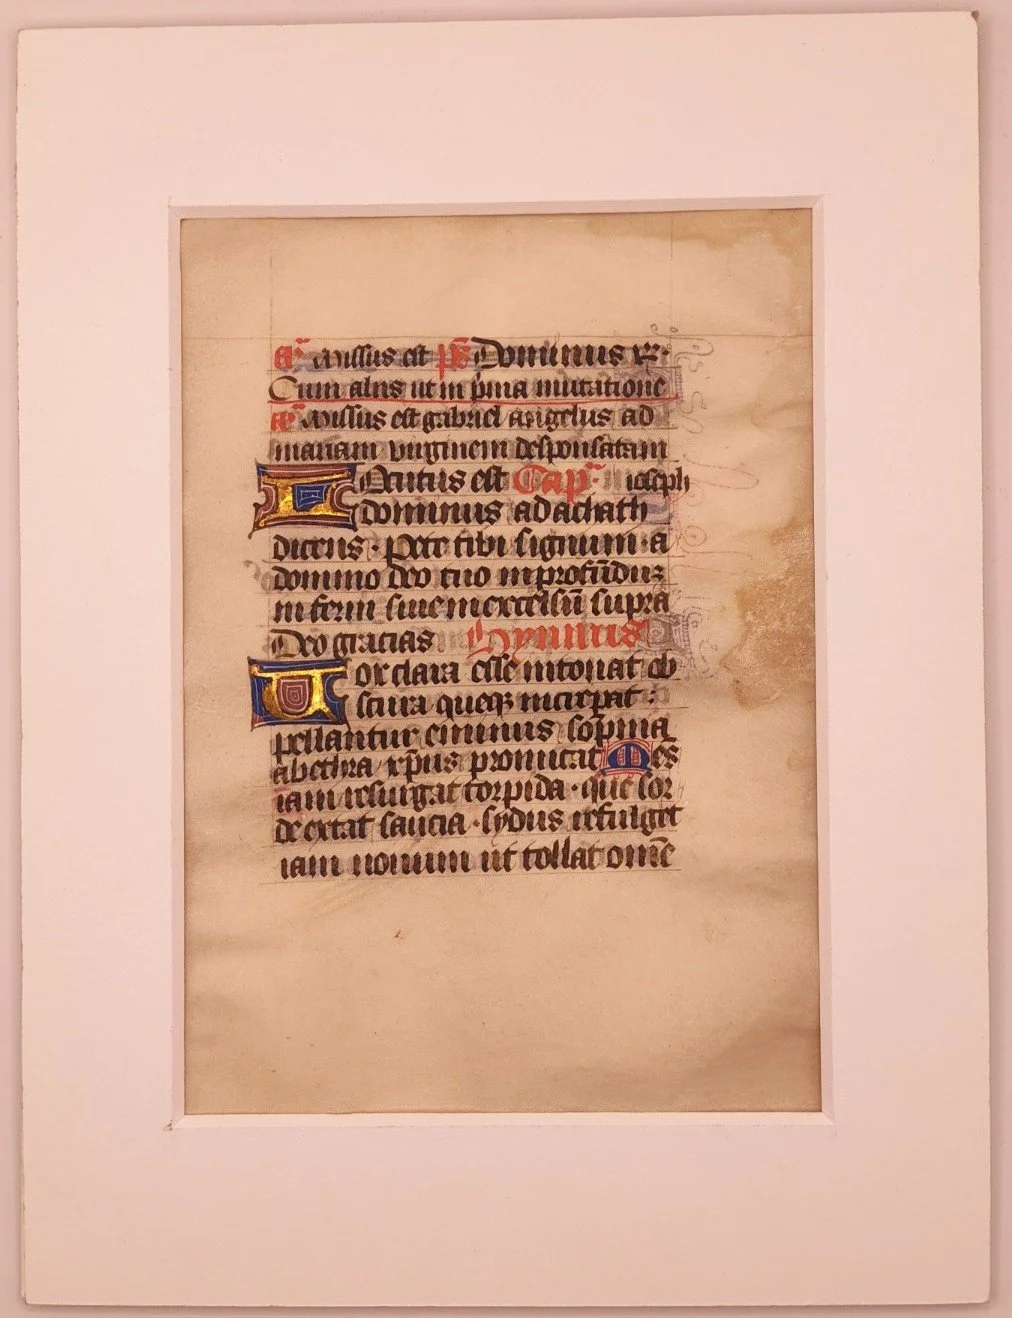 añ Missus est ps Dominus r̄.
Cum aliis ut in p̄ma mutatione
añ Missus est gabriel angelus ad
mariam virginem desponsatam
LOcutus est Cap̄. ioseph
dominus ad achath
dicens · Pete tibi signum · a
domino deo tuo in profūdūz
in ferni siue in excelsū supra
Deo gracias Hymnus
Vox clara esse intonat ob
scura queqz increpat :
pellantur eminus sōpnia
abethra xp̄us promicat Mes
iam resurgat torpida · que sor
de extat saucia · sydus refulget
iam nouum ut tollat omē